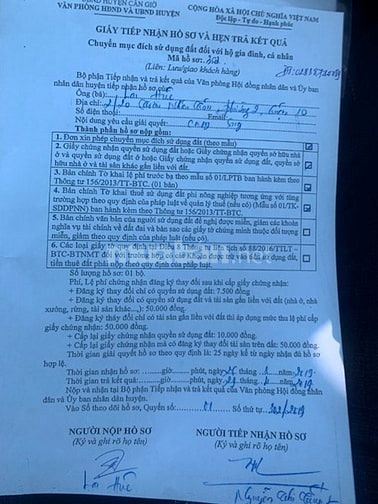 UBND HUYỆN CẦN GIỜ
VĂN PHÒNG HĐND và UBND HUYỆN
CỘNG HÒA XÃ HỘI CHỦ NGHĨA VIỆT NAM
Độc lập - Tự do - Hạnh phúc
GIẤY TIẾP NHẬN HỒ SƠ VÀ HẸN TRẢ KẾT QUẢ
Chuyển mục đích sử dụng đất đối với hộ gia đình, cá nhân
Mã hồ sơ:
(Liên: Lưu/giao khách hàng)
Bộ phận Tiếp nhận và trả kết quả của Văn phòng Hội đồng nhân dân và Ủy
ban nhân dân huyện tiếp nhận hồ sơ của:
Ông (bà): Huê
Địa chỉ:
Số điện thoại: Email:
Nội dung yêu cầu giải quyết:
Thành phần hồ sơ nộp gồm:
1. Đơn xin phép chuyển mục đích sử dụng đất (theo mẫu)
2. Giấy chứng nhận quyền sử dụng đất hoặc Giấy chứng nhận quyền sở hữu nhà
ở và quyền sử dụng đất ở hoặc Giấy chứng nhận quyền sử dụng đất, quyền sở
hữu nhà ở và tài sản khác gắn liền với đất.
3. Bản chính Tờ khai lệ phí trước bạ theo mẫu số 01/LPTB ban hành kèm theo
Thông tư 156/2013/TT-BTC. (01 bản)
4. Bản chính Tờ khai thuế sử dụng đất phi nông nghiệp tương ứng với từng
trường hợp theo quy định của pháp luật về quản lý thuế (nếu có) (Mẫu số 01/TK-
SDDPNN) ban hành kèm theo Thông tư 156/2013/TT-BTC.
5. Bản chính văn bản của người sử dụng đất đề nghị được miễn, giảm các khoản
nghĩa vụ tài chính về đất đai và bản sao các giấy tờ chứng minh thuộc đối tượng
miễn, giảm theo quy định của pháp luật (nếu có).
6. Các loại giấy tờ quy định tại Điều 3 Thông tư liên tịch số 88/2016/TTLT -
BTC-BTNMT đối với trường hợp có các khoản
tiền thuê đất phải nộp theo quy định của pháp luật.
Số lượng hồ sơ: 01 bộ.
Phí, Lệ phí chứng nhận đăng ký thay đổi sau khi cấp giấy chứng nhận:
+ Đăng ký thay đổi chỉ có quyền sử dụng đất: 7.500 đồng
+ Đăng ký thay đổi chỉ có tài sản gắn liền với đất (nhà ở, nhà
xưởng, rừng, tài sản khác...): 50.000 đồng.
+ Đăng ký thay đổi có tài sản gắn liền với đất thì áp dụng mức thu lệ phí cấp
giấy chứng nhận: 50.000 đồng.
+ Cấp lại giấy chứng nhận quyền sử dụng đất: 10.000 đồng.
+ Cấp lại giấy chứng nhận mà có đăng ký thay đổi tài sản trên đất: 50.000 đồng.
Thời gian giải quyết hồ sơ theo quy định là: 25 ngày kể từ ngày nhận đủ hồ sơ
hợp lệ.
Thời gian nhận hồ sơ: ......giờ......phút, ngày 2019
Thời gian trả kết quả: ......giờ......phút, ngày 2019
Nộp và nhận tại Bộ phận Tiếp nhận và trả kết quả của Văn phòng Hội đồng nhân
dân và Ủy ban nhân dân huyện.
Vào Sổ theo dõi hồ sơ, Quyển số: 01 Số thứ tự: /2019
NGƯỜI NỘP HỒ SƠ
(Ký và ghi rõ họ tên)
NGƯỜI TIẾP NHẬN HỒ SƠ
(Ký và ghi rõ họ tên)
Huê
Nguyễn